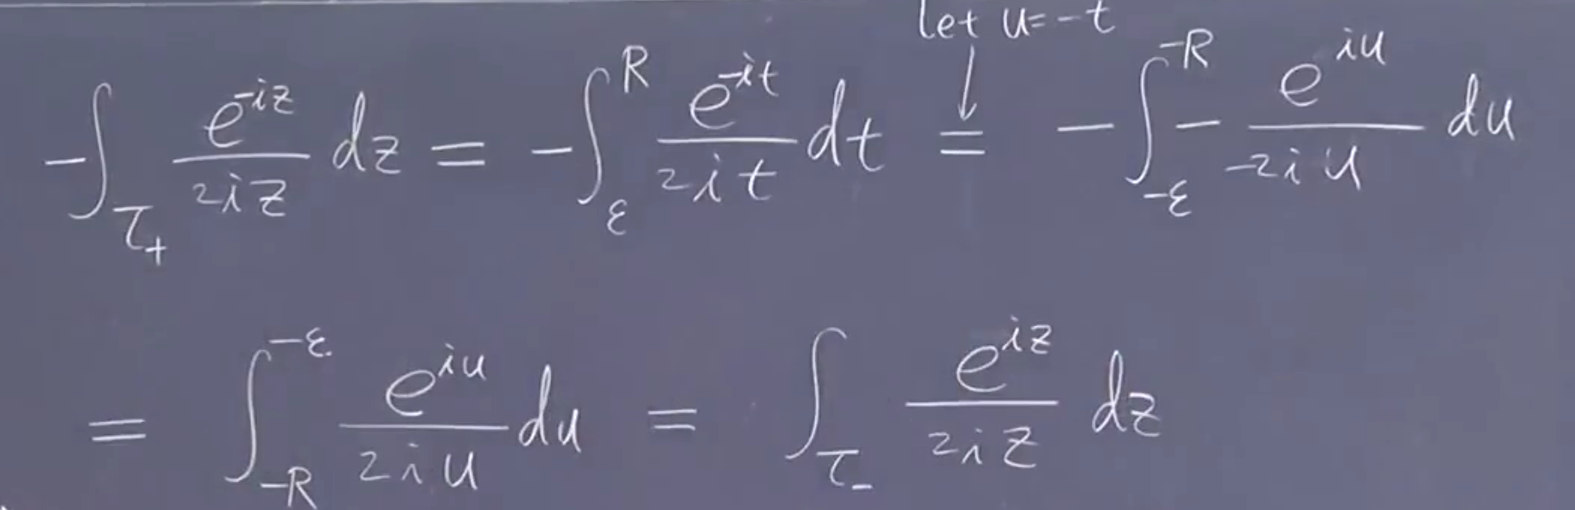 let u=-t
-∫_{τ₊} e^{-iz}/2iz dz = -∫_ε^R e^{-it}/2it dt = -∫_{-ε}^{-R} - e^{iu}/-2iu du
= ∫_{-R}^{-ε} e^{iu}/2iu du = ∫_{τ₋} e^{iz}/2iz dz